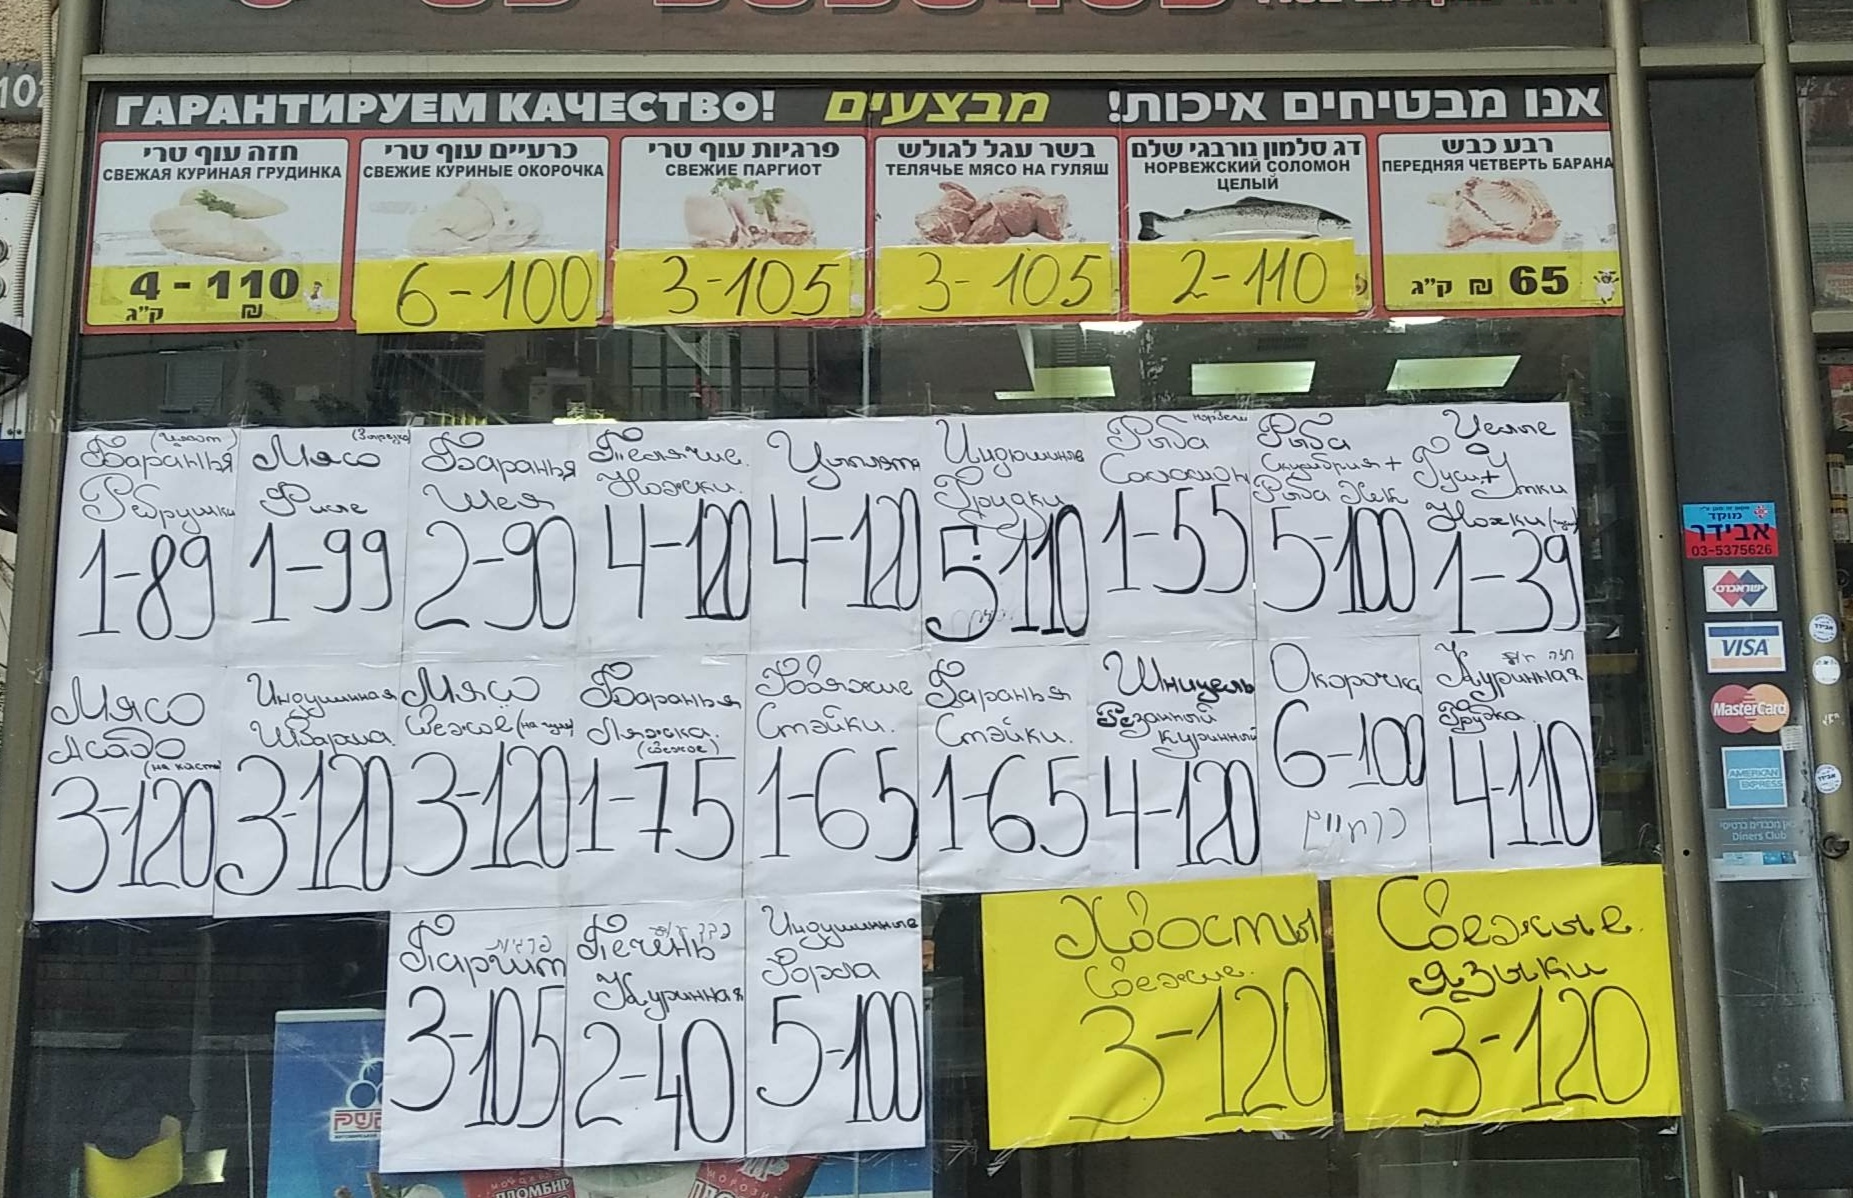 ГАРАНТИРУЕМ КАЧЕСТВО! מבצעים אנו מבטיחים איכות!
חזה עוף טרי
СВЕЖАЯ КУРИНАЯ ГРУДИНКА
4 - 110
ק"ג ₪
כרעיים עוף טרי
СВЕЖИЕ КУРИНЫЕ ОКОРОЧКА
6-100
פרגיות עוף טרי
СВЕЖИЕ ПАРГИОТ
3-105
בשר עגל לגולש
ТЕЛЯЧЬЕ МЯСО НА ГУЛЯШ
3-105
דג סלמון נורבגי שלם
НОРВЕЖСКИЙ СОЛОМОН
ЦЕЛЫЙ
2-110
רבע כבש
ПЕРЕДНЯЯ ЧЕТВЕРТЬ БАРАНА
65 ₪ ק"ג
Баранья
Рёбрушки
1-89
Мясо
Филе
1-99
Баранья
Шея
2-90
Телячие.
Ножки.
4-120
Цыплята
4-120
Грудки
5-110
Рыба
Соломон
1-55
Рыба
Скумбрия +
Рыба
5-100
Целые
Гуси + Утки
Ножки
1-39
Мясо
Асадо
3-120
Индюшинная
Шварма.
3-120
Мясо
Свежее
3-120
Баранья
Ляжска.
(свежее)
1-75
Говяжие
Стэйки.
1-65
Баранья
Стэйки.
1-65
Шницель
Резанный
Куринный
4-120
Окорочка
6-100
כרעיים
Куринная
Грудка
4-110
פרגית
Паргит
3-105
Печень
Куринная
2-40
Индюшинные
Горла
5-100
Хвосты
Свежие.
3-120
Свежые.
Языки
3-120
מוקד
אבידר
03-5375626
ישראכרט
VISA
MasterCard
AMERICAN
EXPRESS
כאן מכבדים כרטיסי
Diners Club
ПЛОМБИР